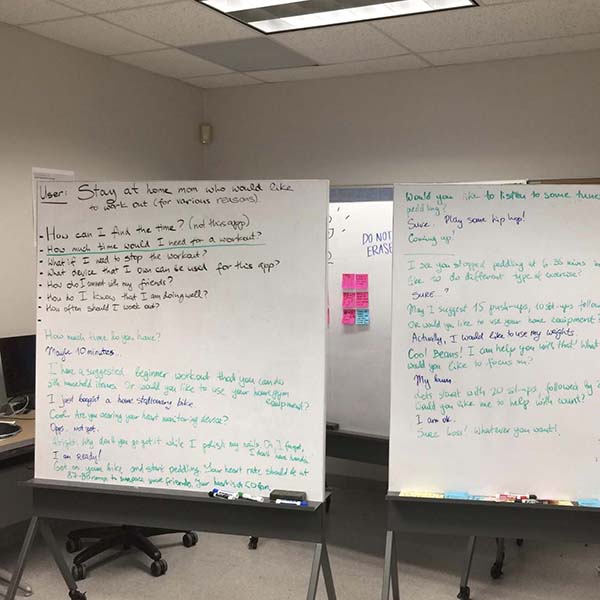 User: Stay at home mom who would like
to work out (for various reasons)
- How can I find the time? (not this app)
- How much time would I need for a workout?
- What if I need to stop the workout?
- What device that I own can be used for this app?
- How do I connect with my friends?
- How do I know that I am doing well?
- How often should I work out?
How much time do you have?
Maybe 10 minutes
I have a suggested beginner workout that you can do
with household items. Or would you like to use your home gym
equipment?
I just bought a home stationary bike
Cool. Are you wearing your heart monitoring device?
Oops, not yet.
Alright. Why don't you go get it while I polish my nails. Oh I forgot,
I don't have hands.
I am ready!
Get on your bike, and start peddling. Your heart rate should be at
DO NOT
ERASE
Would you like to listen to some tunes
peddling?
Sure. Play some hip hop!
Coming up!
I see you stopped peddling at 6:36 mins
like to do different type of exercise?
Sure..?
May I suggest 15 push-ups, 10 sit-ups
Or would you like to use your home equipment?
Actually, I would like to use my weights
Cool Beans! I can help you with that! What
would you like to focus on?
My bum
Lets start with 20 sit-ups, followed by
Would you like me to help with count?
I am ok.
Sure boss! Whatever you want!